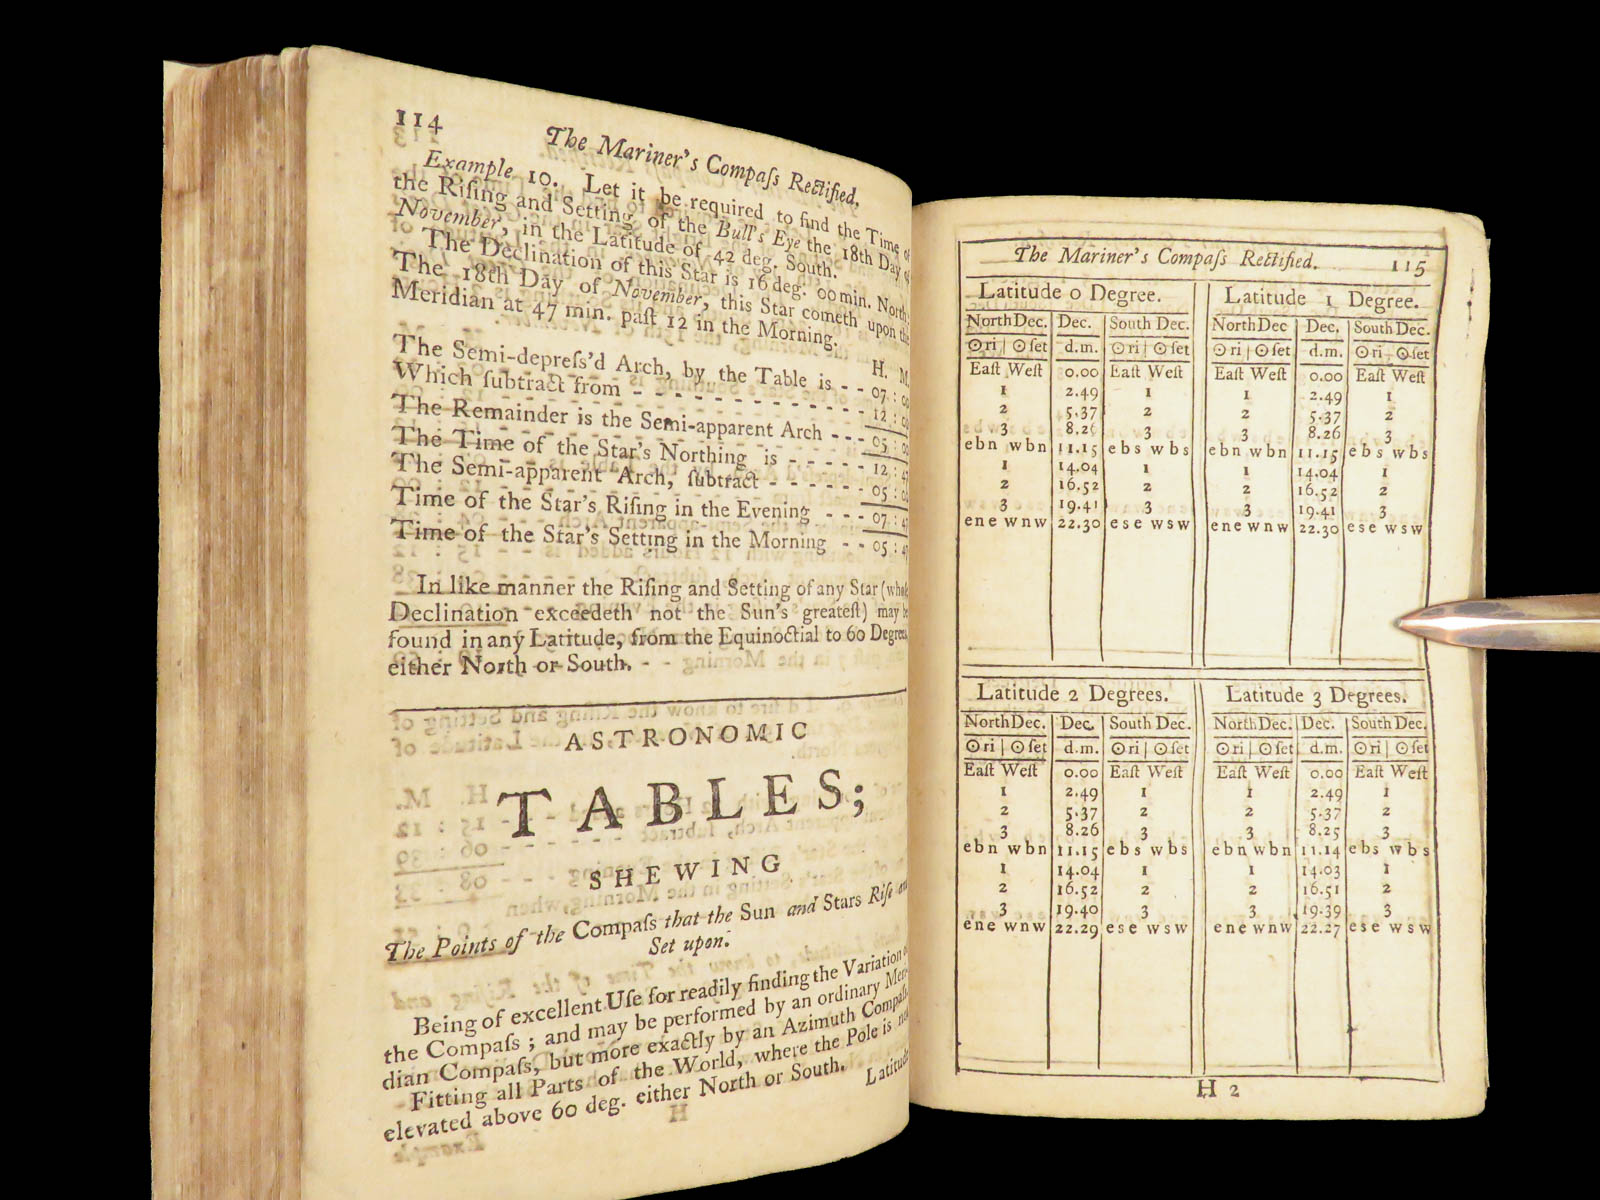 114 The Mariner's Compaſs Rectified.
Example 10. Let it be required to find the Time of
the Riſing and Setting of the Bull's Eye the 18th Day of
November, in the Latitude of 42 deg. South.
The Declination of this Star is 16 deg. 00 min. North.
The 18th Day of November, this Star cometh upon the
Meridian at 47 min. paſt 12 in the Morning.
H. M.
The Semi-depreſs'd Arch, by the Table is - - 07 : 00
Which ſubtract from - - - - - - - - - - - - 12 : 00
The Remainder is the Semi-apparent Arch - - - 05 : 00
The Time of the Star's Northing is - - - - - 12 : 47
The Semi-apparent Arch, ſubtract - - - - - - 05 : 00
Time of the Star's Riſing in the Evening - - - 07 : 47
Time of the Star's Setting in the Morning - - 05 : 47
In like manner the Riſing and Setting of any Star (whoſe
Declination exceedeth not the Sun's greateſt) may be
found in any Latitude, from the Equinoctial to 60 Degrees,
either North or South.
ASTRONOMIC
TABLES;
SHEWING
The Points of the Compaſs that the Sun and Stars Riſe and
Set upon.
Being of excellent Uſe for readily finding the Variation of
the Compaſs ; and may be performed by an ordinary Meri-
dian Compaſs, but more exactly by an Azimuth Compaſs.
Fitting all Parts of the World, where the Pole is not
elevated above 60 deg. either North or South.
H Latitude
The Mariner's Compaſs Rectified. 115
Latitude 0 Degree.
North Dec. Dec. South Dec.
☉ri | ☉ſet d.m. ☉ri | ☉ſet
Eaſt Weſt 0.00 Eaſt Weſt
1 2.49 1
2 5.37 2
3 8.26 3
ebn wbn 11.15 ebs wbs
1 14.04 1
2 16.52 2
3 19.41 3
ene wnw 22.30 ese wsw
Latitude 1 Degree.
North Dec Dec. South Dec.
☉ri | ☉ſet d.m. ☉ri | ☉ſet
Eaſt Weſt 0.00 Eaſt Weſt
1 2.49 1
2 5.37 2
3 8.26 3
ebn wbn 11.15 ebs wbs
1 14.04 1
2 16.52 2
3 19.41 3
ene wnw 22.30 ese wsw
Latitude 2 Degrees.
North Dec. Dec. South Dec.
☉ri | ☉ſet d.m. ☉ri | ☉ſet
Eaſt Weſt 0.00 Eaſt Weſt
1 2.49 1
2 5.37 2
3 8.26 3
ebn wbn 11.15 ebs wbs
1 14.04 1
2 16.52 2
3 19.40 3
ene wnw 22.29 ese wsw
Latitude 3 Degrees.
North Dec. Dec. South Dec.
☉ri | ☉ſet d.m. ☉ri | ☉ſet
Eaſt Weſt 0.00 Eaſt Weſt
1 2.49 1
2 5.37 2
3 8.25 3
ebn wbn 11.14 ebs wbs
1 14.03 1
2 16.51 2
3 19.39 3
ene wnw 22.27 ese wsw
H 2